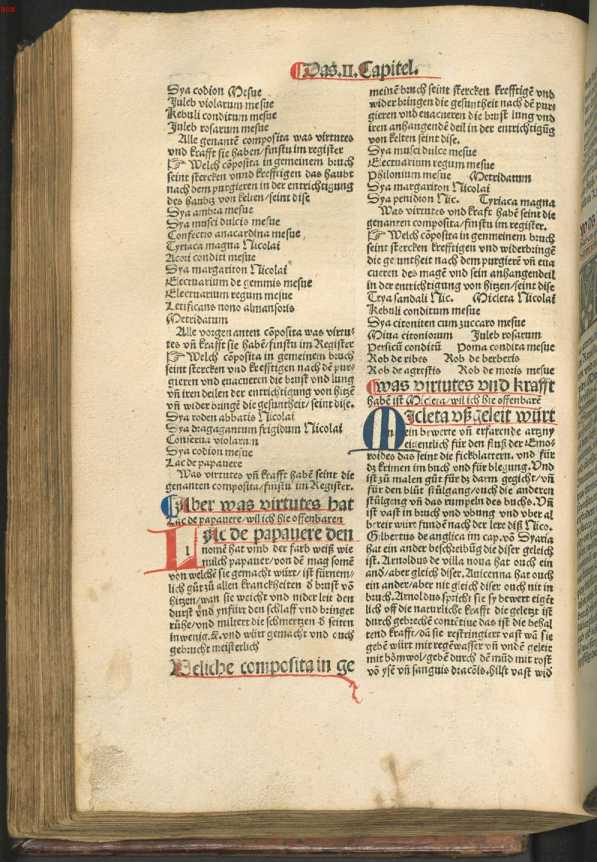 Das.II.Capitel.
Dya codion Mesue
Juleb violarum mesue
Kebuli conditum mesue
Juleb rosarum mesue
Alle genantē composita was virtutes
vnd krafft sie haben/finstu im register
Welch cōposita in gemeinem bruch
seint stercken vnnd kreffrigen das haubt
nach dem purgieren in der entrichtigung
des haubtz von kelten/seint dise
Dya ambra mesue
Dya musci dulcis mesue
Confectio anacardina mesue
Tyriaca magna Nicolai
Acori conditi mesue
Dya margariton Nicolai
Electuarium de gemmis mesue
Electuarium regum mesue
Letificans nono almansoris
Metridatum
Alle vorgenanten cōposita was virtu-
tes vñ krafft sie habē/finstu im Register
Welch cōposita in gemeinem bruch
seint stercken vnd kreffrigen nach dē pur-
gieren vnd euacueren die brust vnd lung
vñ iren deilen der entrichtigung von hitzē
vñ wider bringē die gesuntheit/seint dise.
Dya roden abbatis Nicolai
Dya dragagantum frigidum Nicolai
Conserua violarum
Dya codion mesue
Lac de papauere
Was virtutes vñ krafft habē seint die
genanten composita/finstu im Register.
Aber was virtutes hat
Lac de papauere/wil ich hie offenbaren
LAc de papauere den
nomē hat vmb der farb weiß wie
milch papauer/von dē mag somē
von welchē sie gemacht würt/ist fürnem-
lich gůt zů allen kranckheiten d̄ brust vō
hitzen/wan sie weicht vnd nider leit den
durst vnd ynfürt den schlaff vnd bringet
rühe/vnd miltert die schmertzen d̄ seiten
inwenig.ꝛc.vnd würt gemacht vnd ouch
gebrucht meisterlich
Weliche composita in ge
meinē bruch seint stercken kreffrigē vnd
wider bringen die gesuntheit nach dē pur-
gieren vnd euacueren die brust lung vnd
iren anhangendē deil in der entrichtigūg
von kelten seint dise.
Dya musci dulce mesue
Electuarium regum mesue
Philonium mesue Metridatum
Dya margariton Nicolai
Dya penidion Nic. Tyriaca magna
Was virtutes vnd kraft habē seint die
genanten composita/finstu im register.
Welch cōposita in genmeinem bruch
seint stercken kreffrigen vnd widerbringē
die gesuntheit nach dem purgierē vñ eua
cueren des magē vnd sein anhangendeil
in der entrichtigung von hitzen/seint dise
Trya sandali Nic. Micleta Nicolai
Kebuli conditum mesue
Dya citoniten cum zuccaro mesue
Miua citoniorum Juleb rosarum
Persicū conditū Poma condita mesue
Rob de ribes Rob de berberis
Rob de agrestis Rob de moris mesue
was virtutes vnd krafft
habē ist Micleta/wil ich hie offenbarē
MIcleta vß geleit würt
ein bewerte vñ erfarende artzny
eigentlich für den fluß der Emo-
roides das seint die fickblattern. vnd für
dz krimen im buch vnd für blegung. Vnd
ist zů malen gůt für dz darm gegicht/vñ
für den blůt stůlgang/ouch die anderen
stůlgang vñ das rumpeln des buchs. Vñ
ist vast in bruch vnd vbung vnd vber al
bereit würt fundē nach der lere diß Nico.
Gilbertus de anglica im cap. vō Dyaria
hat ein ander beschribūg die diser geleich
ist. Arnoldus de villa noua hat ouch ein
and/aber gleich diser. Auicenna hat ouch
ein ander/aber nit gleich diser ouch nit in
bruch. Arnoldus spricht sie sy bewert eigēt
lich vff die naturliche krafft die geletzt ist
durch gebrechē contētiue das ist die behal
tend krafft/dā sie restringiert vast wā sie
gebē würt mit regēwasser vñ vndē geleit
mit bōmwol/gebē durch dē mūd mit rost
vō ysē vñ sanguis dracōis. hilft vast wid